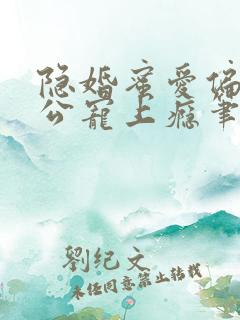 隐婚蜜爱偏
公宠上瘾笔
劉纪文
未经同意禁止转载